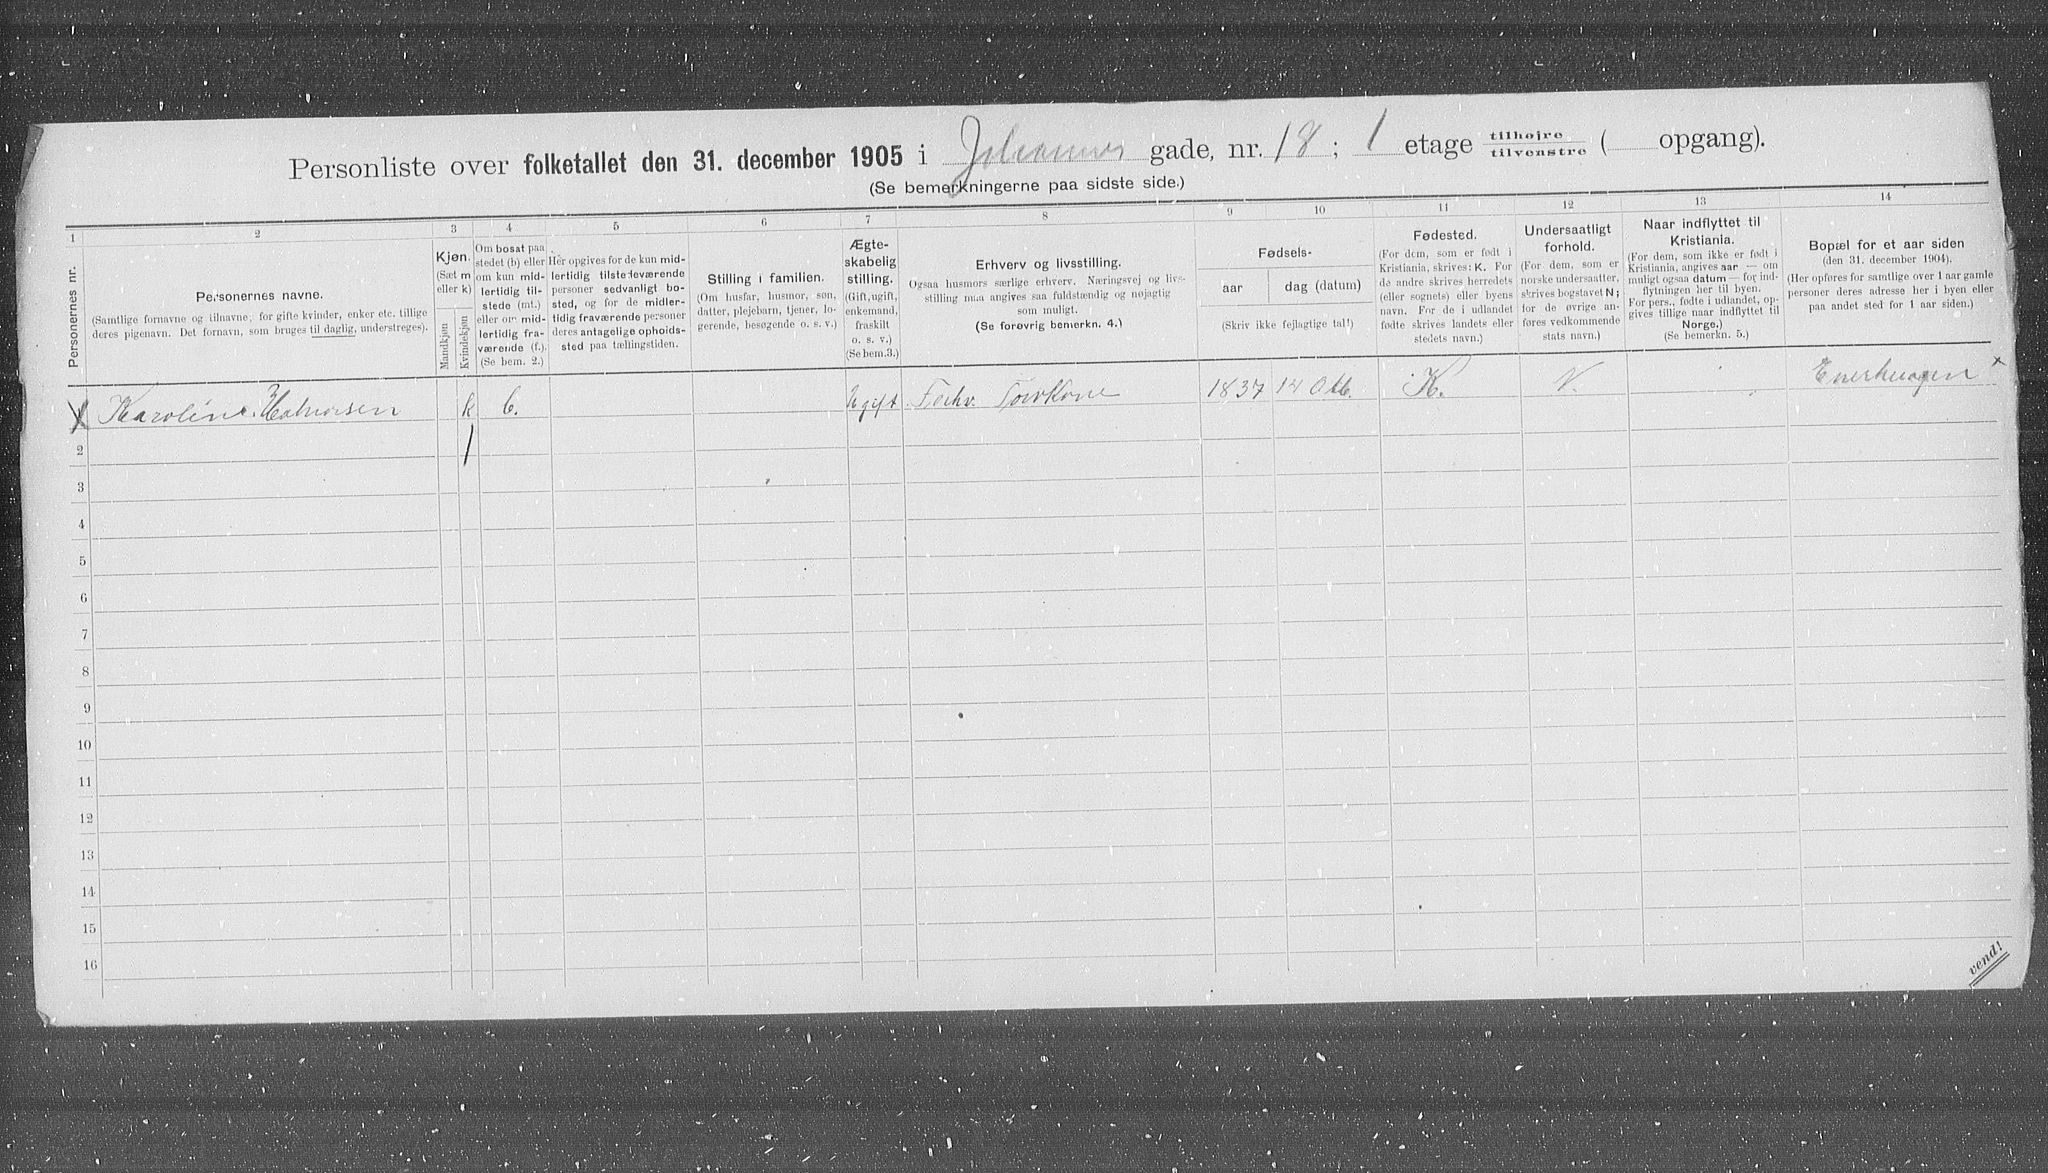 Personliste over folketallet den 31. december 1905 i Johannes gade, nr. 18; 1 etage tilhøire tilvenstre ( opgang).
(Se bemerkningerne paa sidste side.)
1 2 3 4 5 6 7 8 9 10 11 12 13 14
Personernes nr.
Personernes navne.
(Samtlige fornavne og tilnavne; for gifte kvinder, enker etc. tillige
deres pigenavn. Det fornavn, som bruges til daglig, understreges).
Kjøn.
(Sæt m
eller k)
Mandkjøn
Kvindekjøn
Om bosat paa
stedet (b) eller
om kun mid-
lertidig til-
stede (mt.)
eller om mid-
lertidig fra-
værende (f.).
(Se bem. 2.)
Her opgives for de kun mid-
lertidig tilstedeværende
personer sedvanligt bo-
sted, og for de midler-
tidig fraværende personer
deres antagelige opholds-
sted paa tællingstiden.
Stilling i familien.
(Om husfar, husmor, søn,
datter, plejebarn, tjener, lo-
gerende, besøgende o. s. v.)
Ægte-
skabelig
stilling.
(Gift, ugift,
enkemand,
fraskilt
o. s. v.)
(Se bem. 3.)
Erhverv og livsstilling.
Ogsaa husmors særlige erhverv. Næringsvej og livs-
stilling maa angives saa fuldstændig og nøjagtig
som muligt.
(Se forøvrig bemerkn. 4.)
Fødsels-
aar
dag (datum)
(Skriv ikke fejlagtige tal!)
Fødested.
(For dem, som er født i
Kristiania, skrives: K. For
de andre skrives herredets
(eller sognets) eller byens
navn. For de i udlandet
fødte skrives landets eller
stedets navn.)
Undersaatligt
forhold.
(For dem, som er
norske undersaatter,
skrives bogstavet N;
for de øvrige an-
føres vedkommende
stats navn.)
Naar indflyttet til
Kristiania.
(For dem, som ikke er født i
Kristiania, angives aar — om
muligt ogsaa datum — for ind-
flytningen her til byen.
For pers., fødte i udlandet, op-
gives tillige naar indflyttet til
Norge.)
(Se bemerkn. 5.)
Bopæl for et aar siden
(den 31. december 1904).
(Her opføres for samtlige over 1 aar gamle
personer deres adresse her i byen eller
paa andet sted for 1 aar siden.)
Karoline Halvorsen k b. Ugift Forhv. Torvkone 1837 14 Okb. K. N. Enerhaugen x
2 1
3
4
5
6
7
8
9
10
11
12
13
14
15
16
vend!